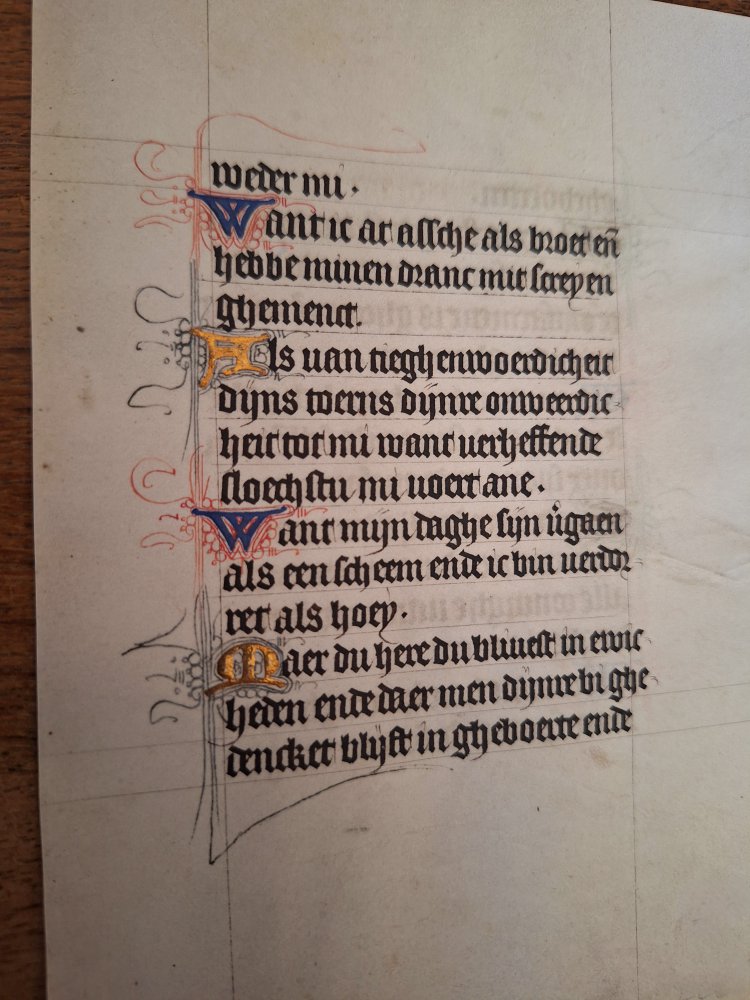 weder mi.
Want ic at assche als broet eñ
hebbe minen dranc mit screyen
ghemenct.
Als van tieghenwoerdicheit
dijns toerns dijnre onweerdic
heit tot mi want verheffende
sloechstu mi voert ane.
Want mijn daghe sijn v̊gaen
als een scheem ende ic bin verdor
ret als hoey.
Maer du here du bliuest in ewic
heden ende daer men dijnre bi ghe
dencket blijft in gheboerte ende